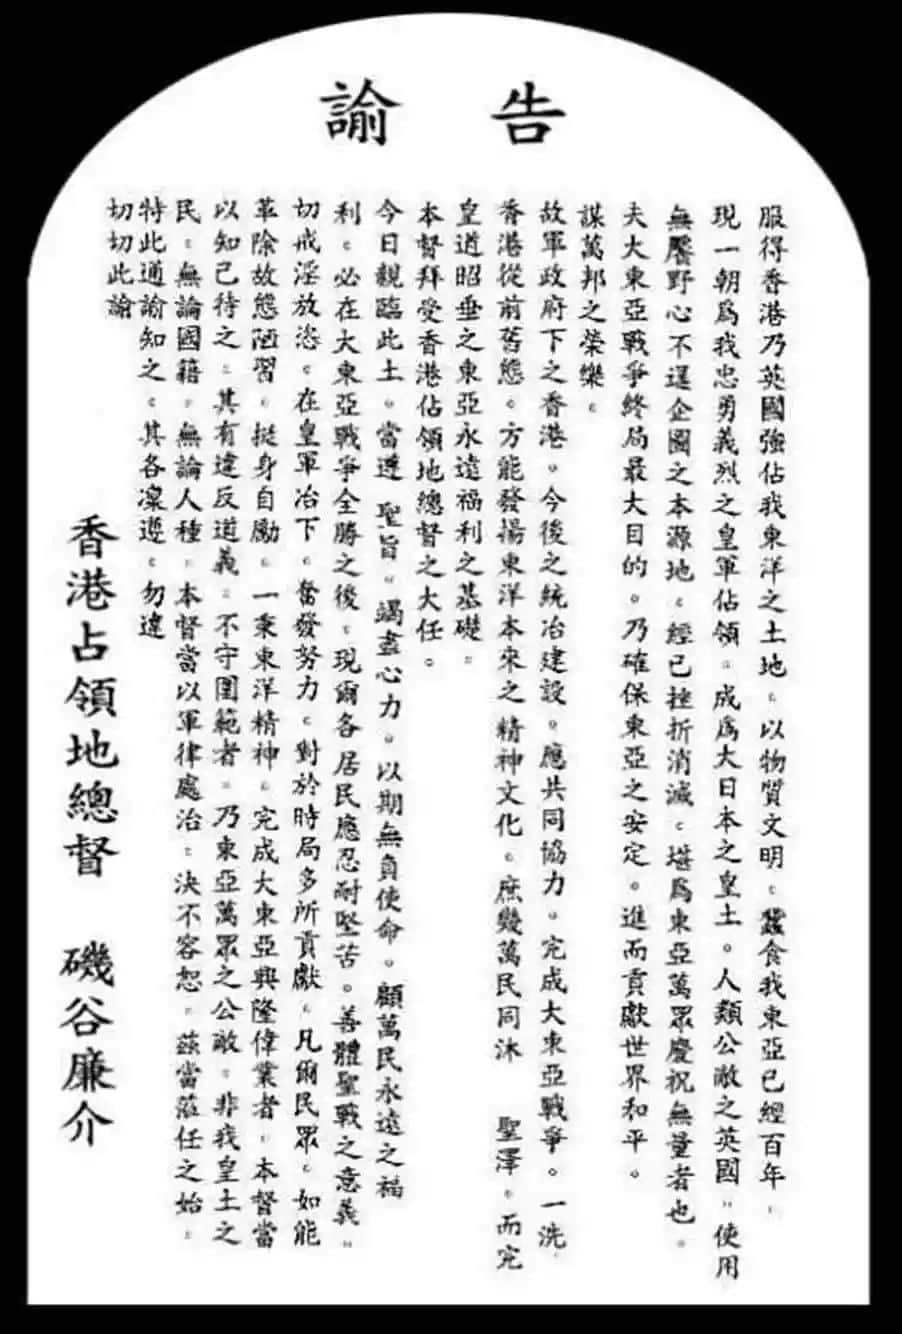 告諭
服得香港乃英國強佔我東洋之土地。以物質文明。蠶食我東亞已經百年。
現一朝爲我忠勇義烈之皇軍佔領。成爲大日本之皇土。人類公敵之英國。使用
無饜野心不逞企圖之本源地。經已挫折消滅。堪爲東亞萬眾慶祝無量者也。
夫大東亞戰爭終局最大目的。乃確保東亞之安定。進而貢獻世界和平。
謀萬邦之榮樂。
故軍政府下之香港。今後之統治建設。應共同協力。完成大東亞戰爭。一洗
香港從前舊態。方能發揚東洋本來之精神文化。庶幾萬民同沐 聖澤。而完
皇道昭垂之東亞永遠福利之基礎。
本督拜受香港佔領地總督之大任。
今日親臨此土。當遵 聖旨。竭盡心力。以期無負使命。顧萬民永遠之福
利。必在大東亞戰爭全勝之後。現爾各居民應忍耐堅苦。善體聖戰之意義。
切戒淫放恣。在皇軍治下。奮發努力。對於時局多所貢獻。凡爾民眾。如能
革除故態陋習。挺身自勵。一秉東洋精神。完成大東亞興隆偉業者。本督當
以知己待之。其有違反道義。不守圍範者。乃東亞萬眾之公敵。非我皇土之
民。無論國籍。無論人種。本督當以軍律處治。決不容恕。茲當蒞任之始。
特此通諭知之。其各凜遵。勿違
切切此諭
香港占領地總督 磯谷廉介